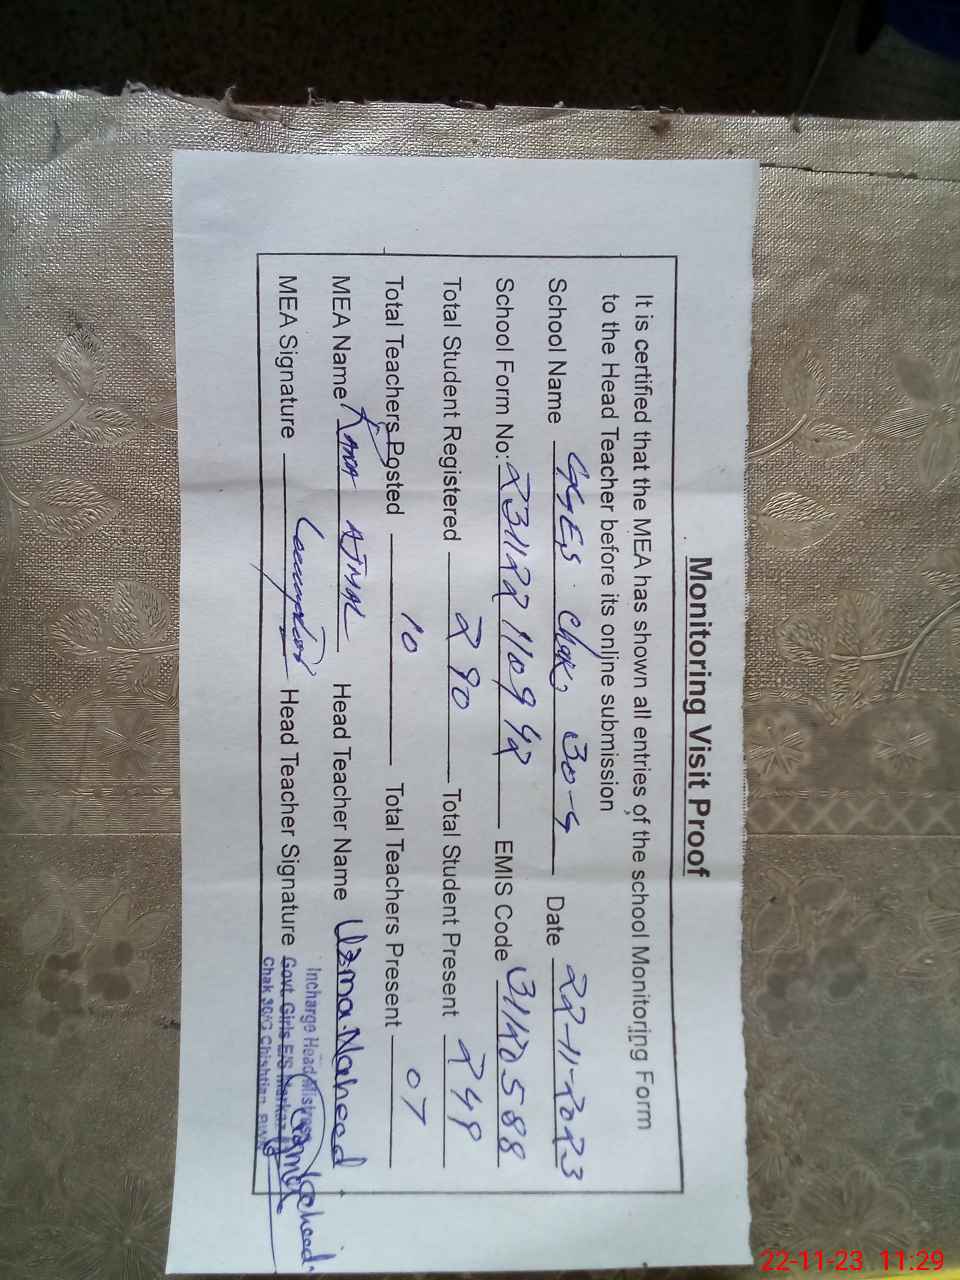 Monitoring Visit Proof
It is certified that the MEA has shown all entries of the school Monitoring Form
to the Head Teacher before its online submission
School Name GGES Chak 30-G Date 22-11-2023
School Form No: 231122110942 EMIS Code 31120588
Total Student Registered 290 Total Student Present 249
Total Teachers Posted 10 Total Teachers Present 07
MEA Name Rana AJMAL Head Teacher Name Uzma Naheed
MEA Signature Head Teacher Signature
Incharge Head Mistress
Govt. Girls E/S Markaz
Chak 30/G Chishtian
22-11-23 11:29